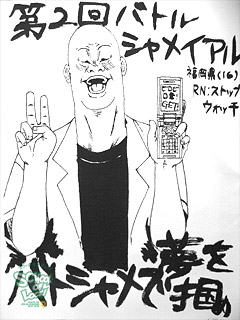 第2回バトル
シャメイアル
福岡県(16)
RN:ストップ
ウォッチ
GET!
バトシャメで夢を
掴め
School of Lock!